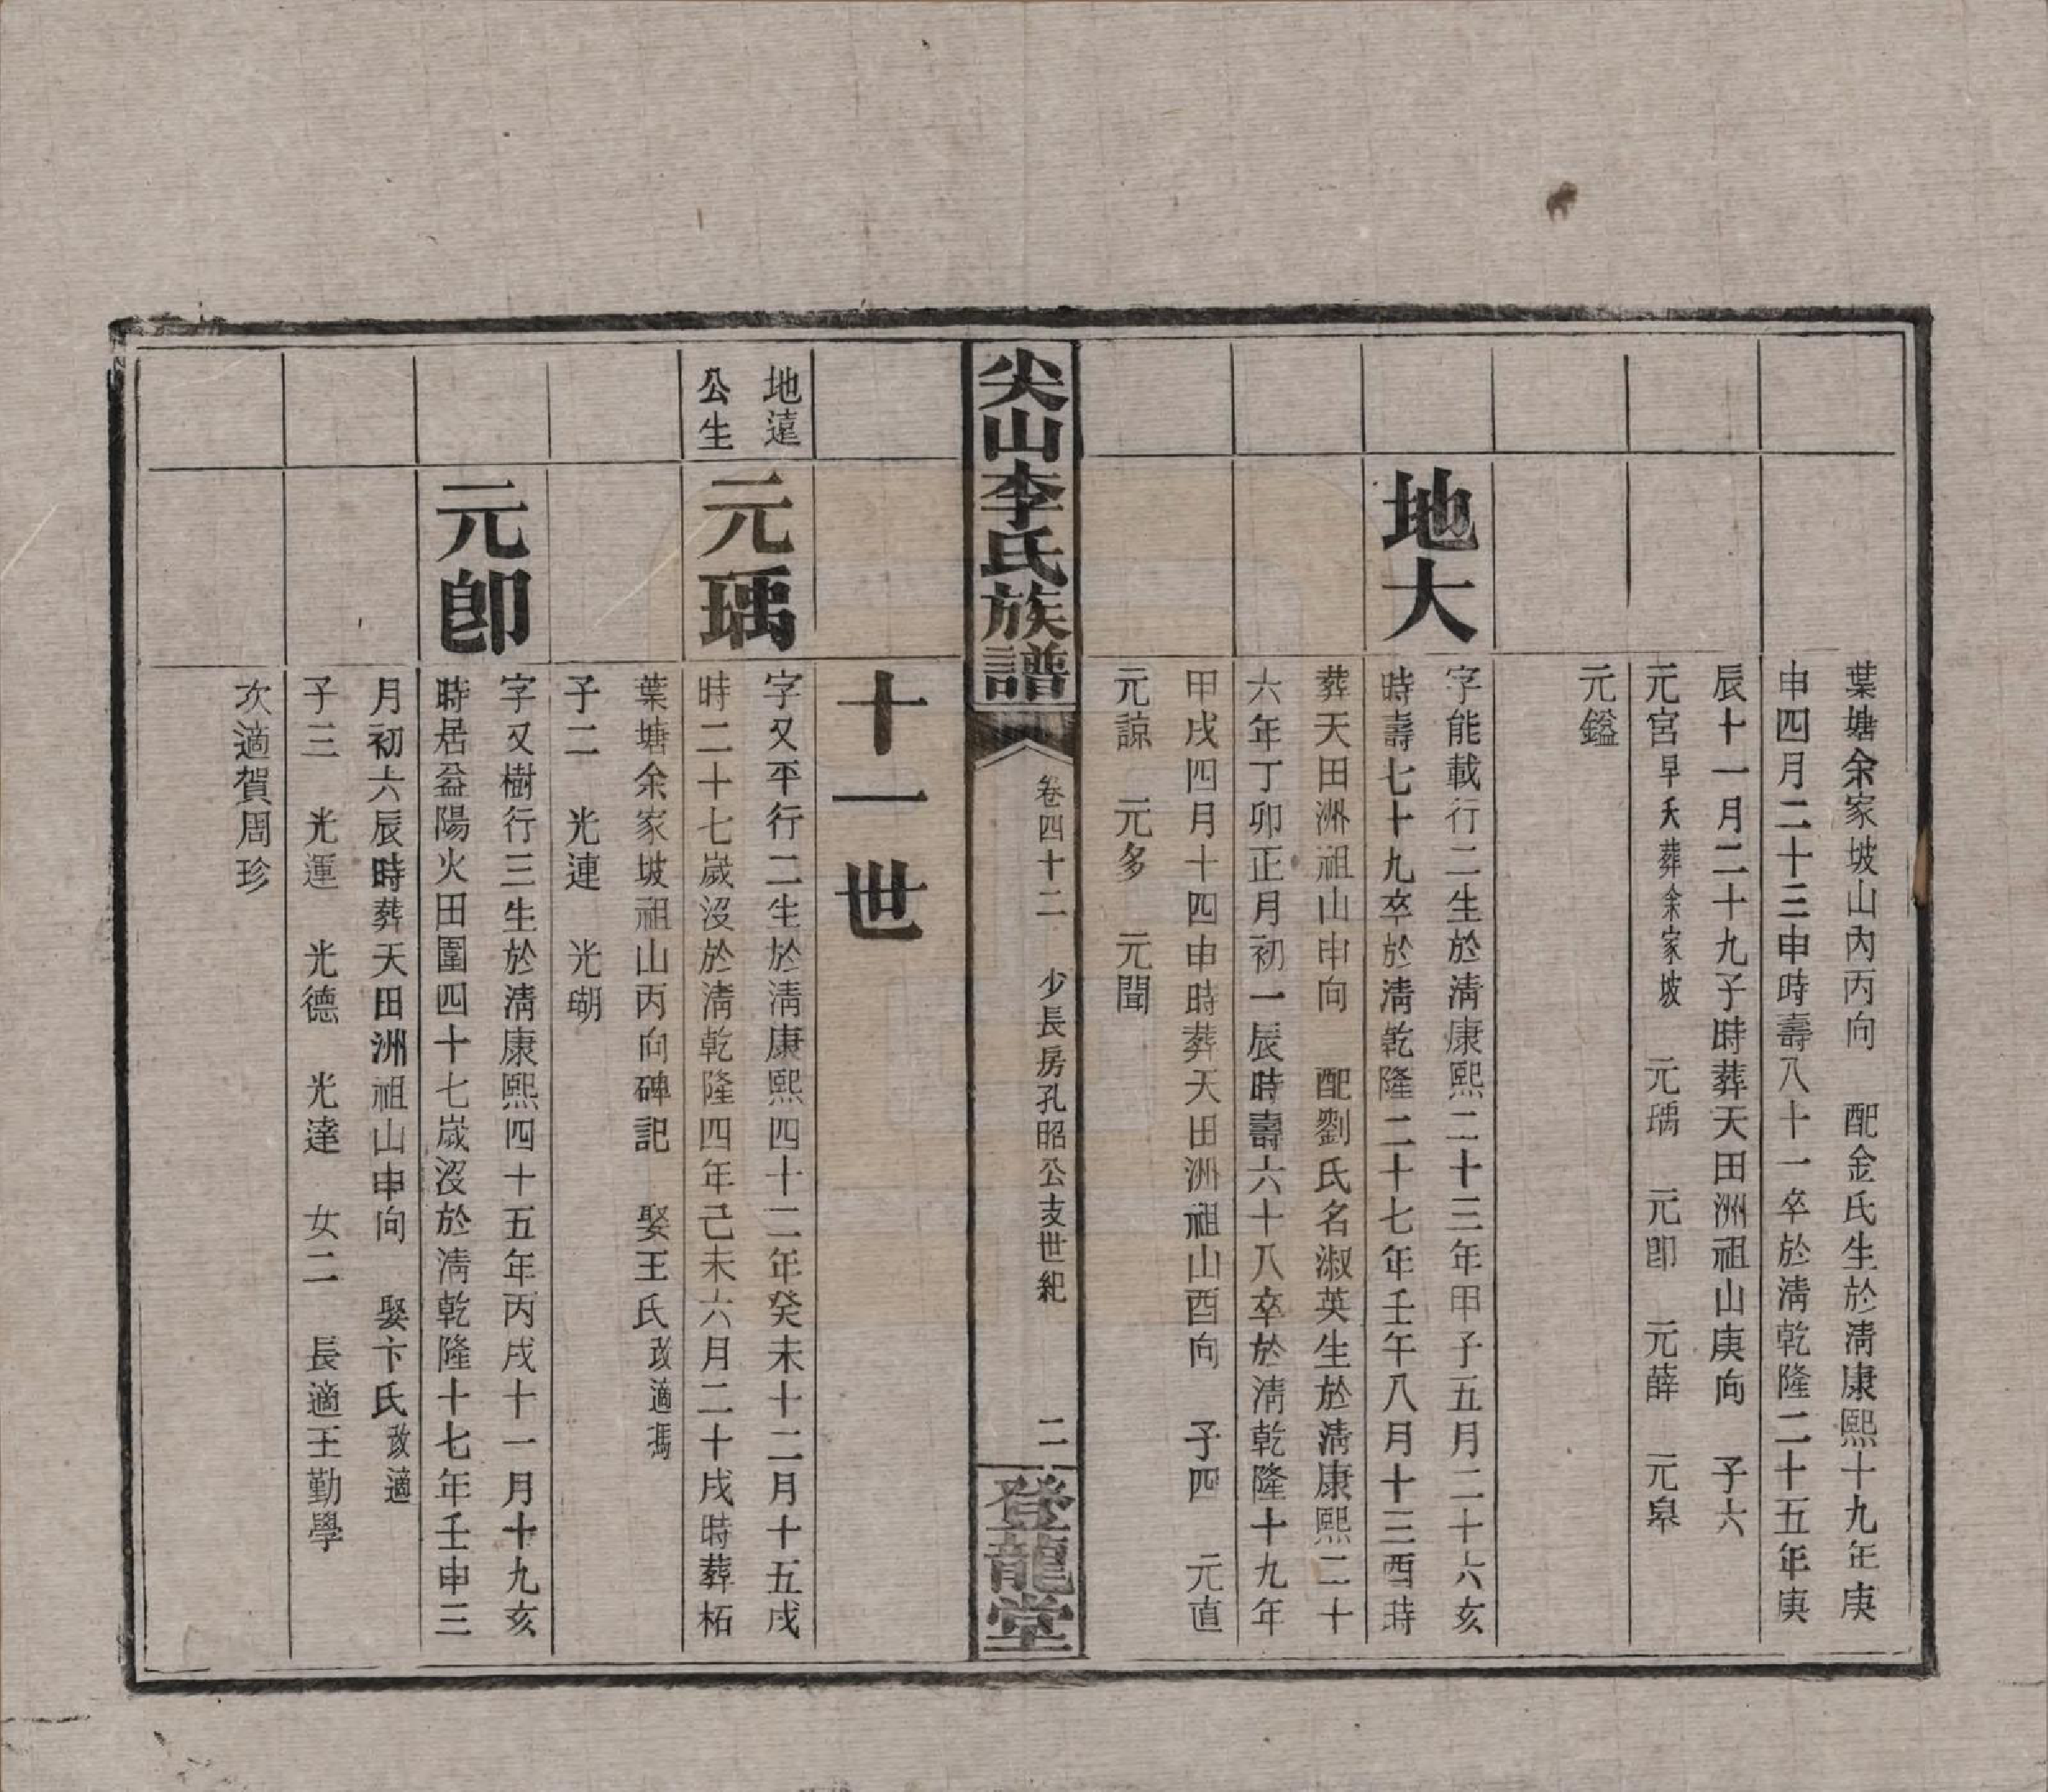 葉塘余家坡山內丙向　配金氏生於淸康熙十九年庚
申四月二十三申時壽八十一卒於淸乾隆二十五年庚
辰十一月二十九子時葬天田洲祖山庚向　子六
元宮早夭葬余家坡　元瑀　元卽　元薛　元皋
元鎰
地大
字能載行二生於淸康熙二十三年甲子五月二十六亥
時壽七十九卒於淸乾隆二十七年壬午八月十三酉時
葬天田洲祖山申向　配劉氏名淑英生於淸康熙二十
六年丁卯正月初一辰時壽六十八卒於淸乾隆十九年
甲戌四月十四申時葬天田洲祖山酉向　子四　元直
元諒　元多　元聞
尖山李氏族譜
卷四十二　少長房孔昭公支世紀　二
登龍堂
十一世
地遠
公生
元瑀
字又平行二生於淸康熙四十二年癸未十二月十五戌
時二十七歲沒於淸乾隆四年己未六月二十戌時葬柘
葉塘余家坡祖山丙向碑記　娶王氏改適馮
子二　光連　光瑚
元卽
字又樹行三生於淸康熙四十五年丙戌十一月十九亥
時居益陽火田圍四十七歲沒於淸乾隆十七年壬申三
月初六辰時葬天田洲祖山申向　娶卞氏改適
子三　光運　光德　光達　女二　長適王勤學
次適賀周珍